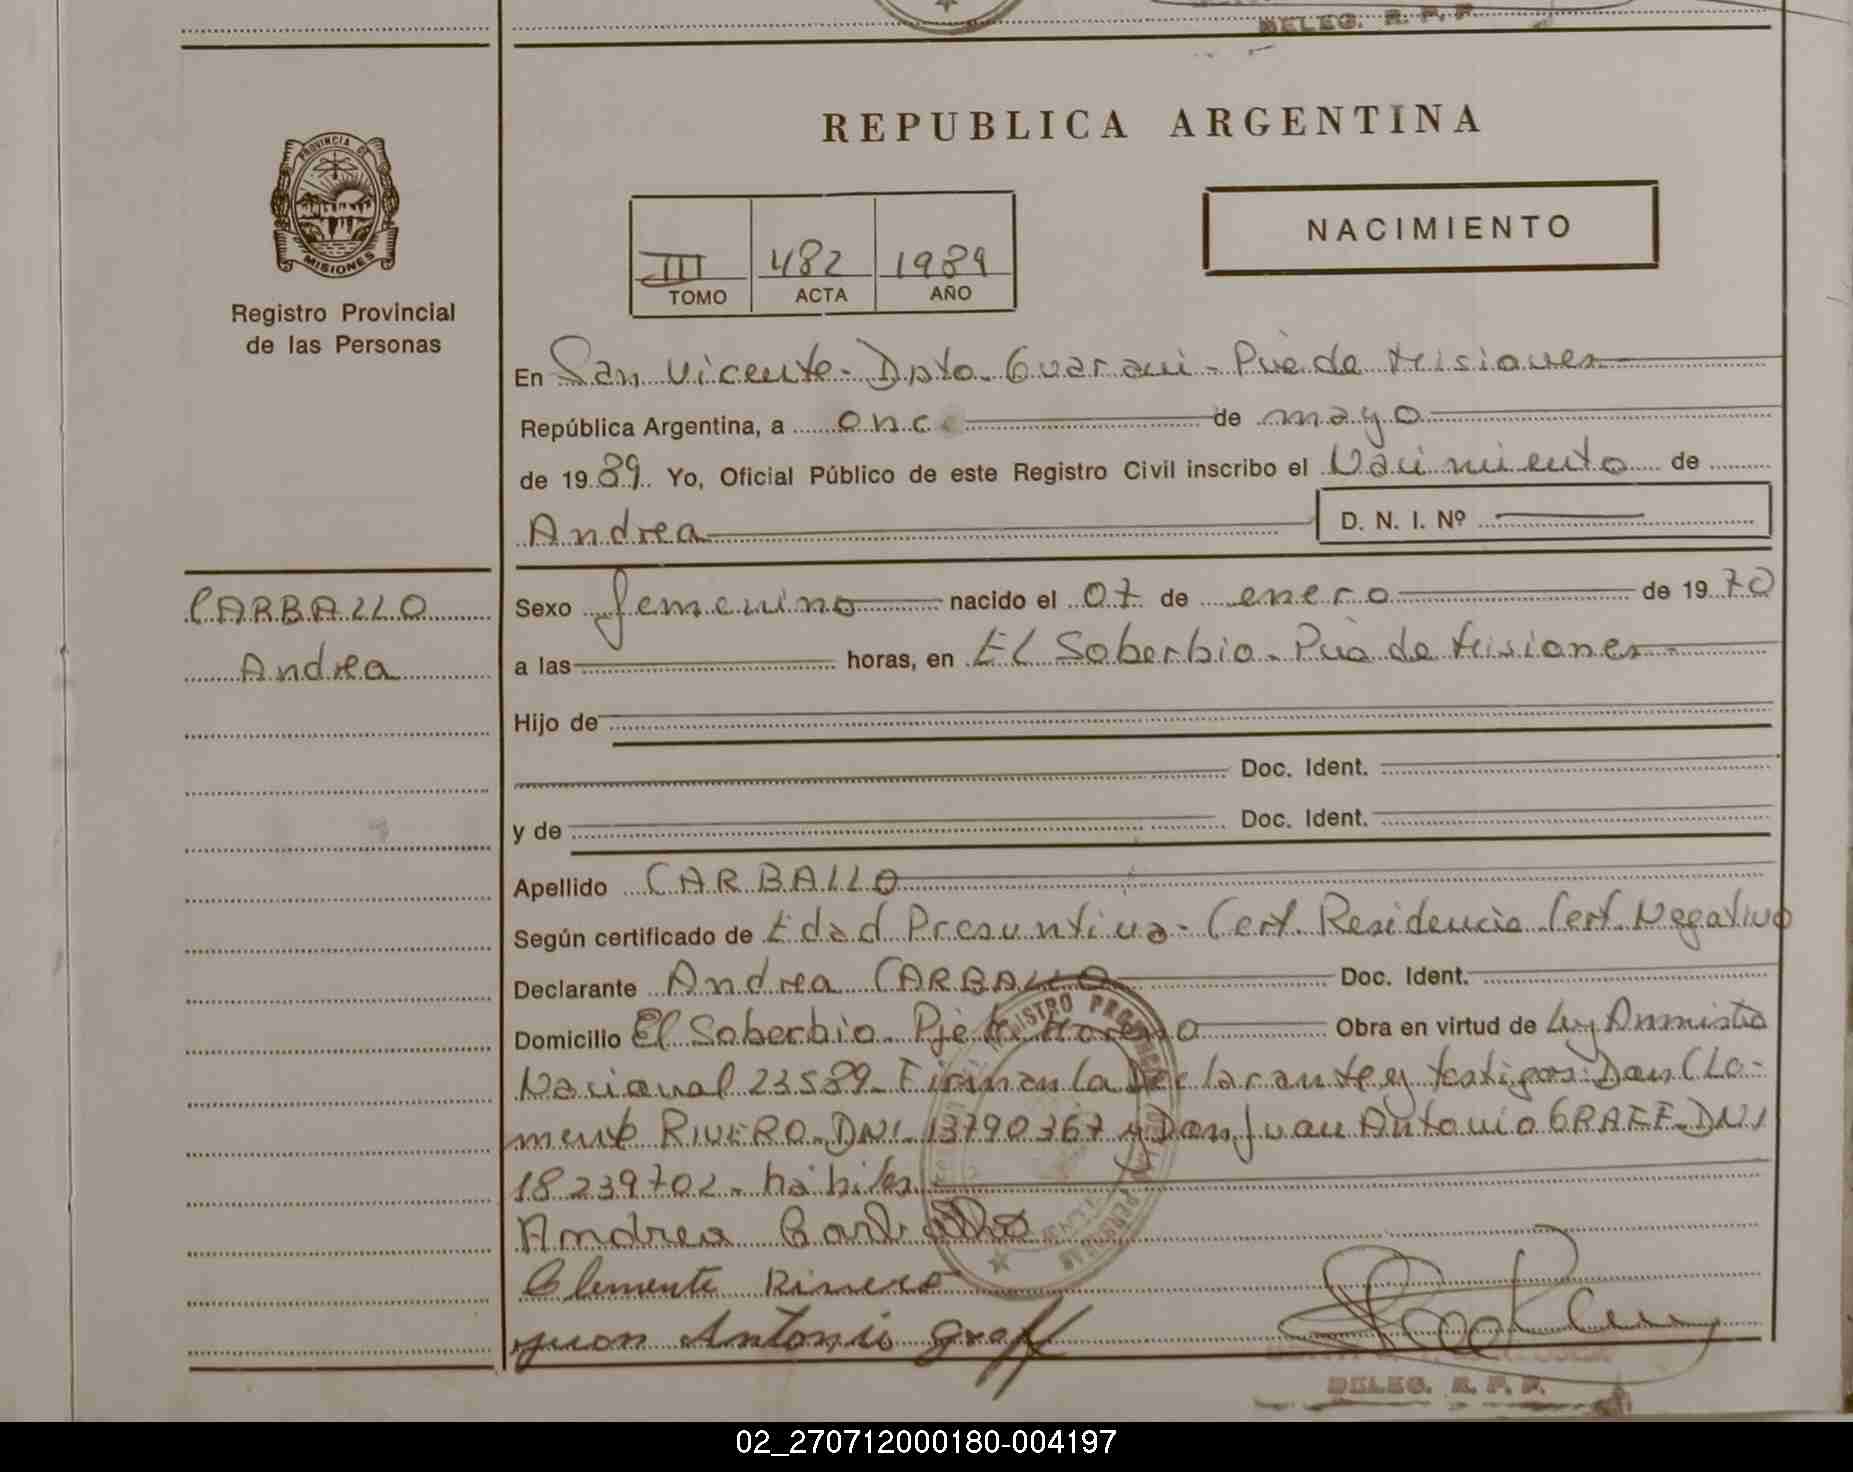 DELEG. R. P. P.
REPUBLICA ARGENTINA
PROVINCIA DE
MISIONES
Registro Provincial
de las Personas
NACIMIENTO
III 482 1989
TOMO ACTA AÑO
En San Vicente - Dpto. Guarani - Pcia de Misiones
República Argentina, a once de mayo
de 1989. Yo, Oficial Público de este Registro Civil inscribo el Nacimiento de
Andrea D. N. I. Nº
CARBALLO
Andrea
Sexo femenino nacido el 07 de enero de 1970
a las horas, en El Soberbio - Pcia de Misiones
Hijo de
Doc. Ident.
y de Doc. Ident.
Apellido CARBALLO
Según certificado de Edad Presuntiva - Cert. Residencia Cert. Negativo
Declarante Andrea CARBALLO Doc. Ident.
Domicilio El Soberbio - Pje Obra en virtud de Ley Amnistia
Nacional 23589 - Firman la Declarante y testigos: Don Cle-
mente RIVERO - DNI. 13790367 y Don Juan Antonio GRAFF - DNI
18239702 - hábiles
Andrea Carballo
Clemente Rivero
Juan Antonio Graff
DELEG. R. P. P.
02_270712000180-004197